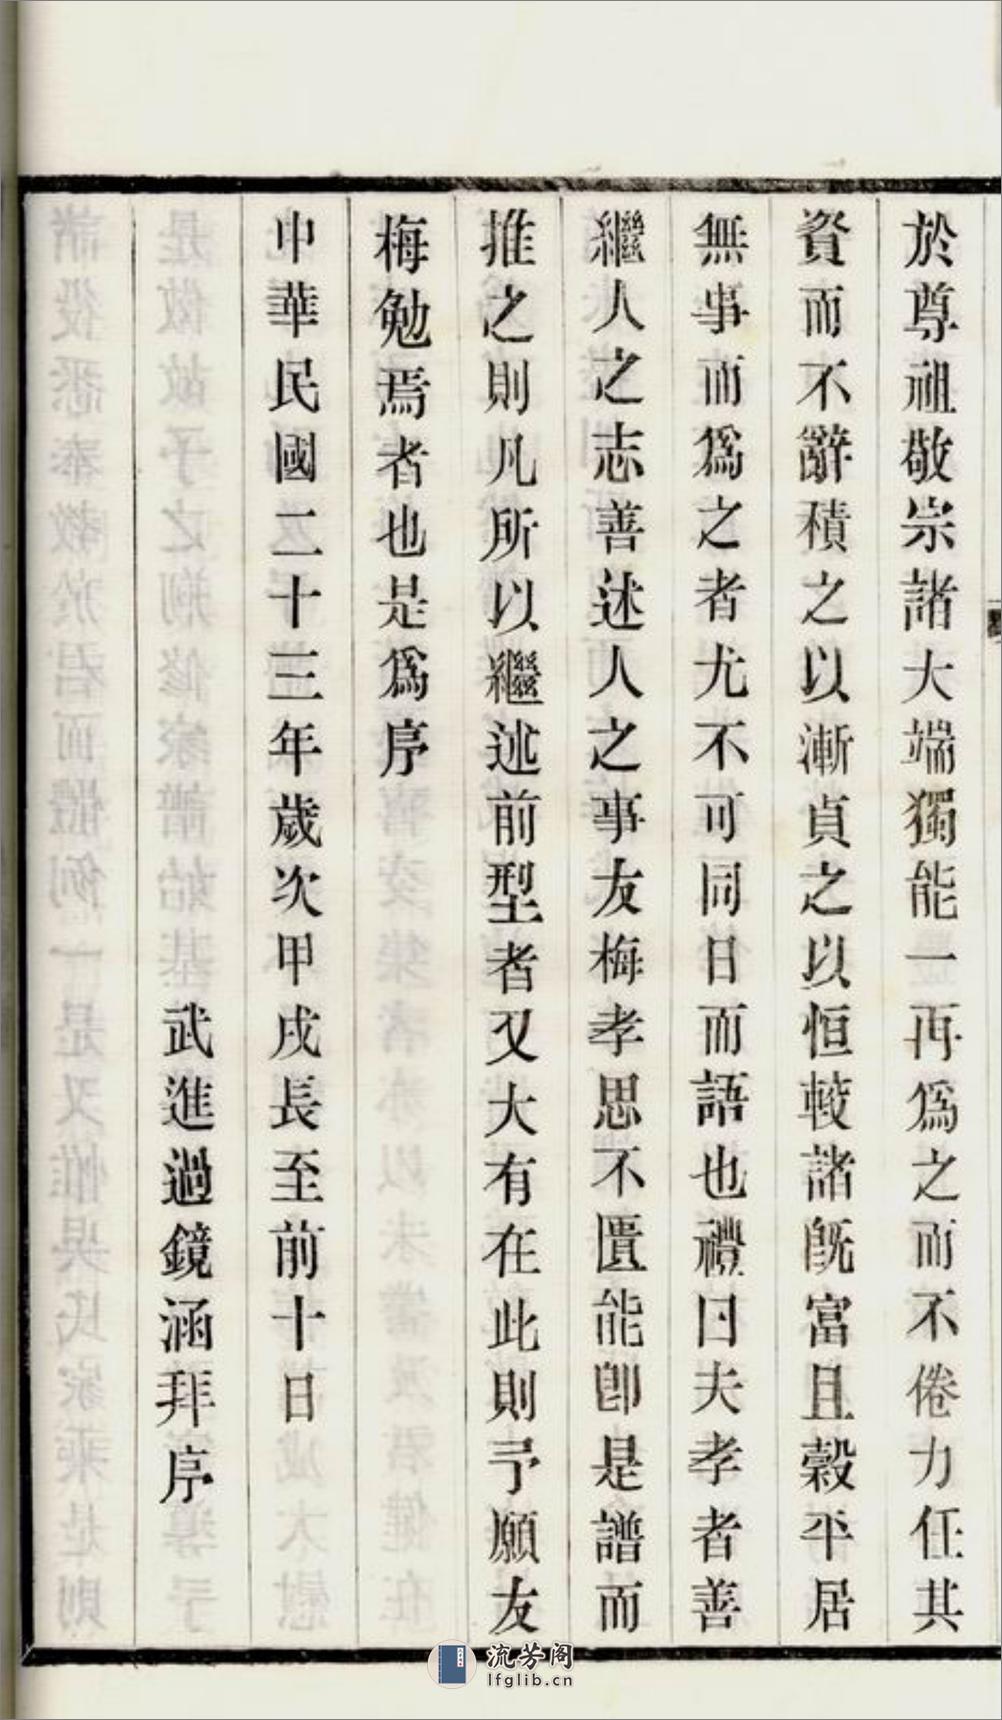 於尊祖敬宗諸大端獨能一再爲之而不倦力任其
資而不辭積之以漸貞之以恒較諸旣富且穀平居
無事而爲之者尤不可同日而語也禮曰夫孝者善
繼人之志善述人之事友梅孝思不匱能卽是譜而
推之則凡所以繼述前型者又大有在此則予願友
梅勉焉者也是爲序
中華民國二十三年歲次甲戌長至前十日
武進過鏡涵拜序
流芳阁
lfglib.cn